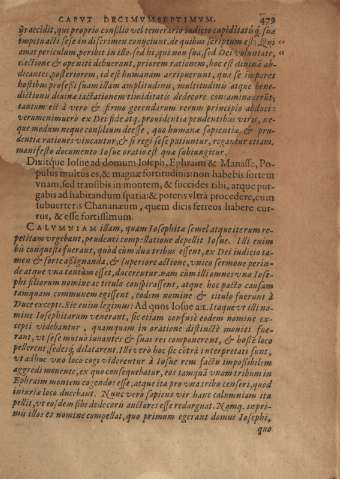 CAPVT DECIMVMSEPTIMVM. 479
vt accidit, qui proprio consilio vel temerario iudicio cupiditatúq; suæ
impetu acti sese in discrimen conijciunt, de quibus scriptum est: Qui
amat periculum, peribit in illo. sed hi, qui non sua, sed Dei voluntate,
electione & ope niti debuerant, priorem rationem, hoc est diuinā ab-
dicantes, posteriorem, id est humanam arripuerunt, qua se impares
hostibus professi suam illam amplitudinem, multitudinis atque bene-
dictionis diuinæ iactationem timiditatis dedecore contaminarūt,
tantum est à vero & firmo gerendarum rerum principio abduci.
verumenimuero ex Dei fide atq; prouidentia pendentibus viris, ne-
que modum neque consilium deesse, quo humana sapientia, & pru-
dentia rationes vincantur, & si regi sese patiuntur, rogantur etiam,
manifesto documento Iosue oratio est quæ subiungitur.
Dixitque Iosue ad domum Ioseph, Ephraim & Manasse, Po-
pulus multus es, & magnæ fortitudinis: non habebis sortem
vnam, sed transibis in montem, & succides tibi, atque pur-
gabis ad habitandum spatia: & poteris vltrà procedere, cum
subuerteris Chananæum, quem dicis ferreos habere cur-
rus, & esse fortissimum.
CALVMNIAM illam, quam Iosephitæ semel atque iterum re-
petitam vrgebant, prudenti compellatione depellit Iosue. Illi enim
hoc conquesti fuerant, quod cùm duæ tribus essent, ex Dei iudicio ta-
men & sorte assignanda, & superiore actione, vnico sermone perin-
de atque vna tantùm esset, ducerentur. nam cùm illi omnes vno Iose-
ph filiorum nomine ac titulo conspirassent, atque hoc pacto causam
tamquam communem egissent, eodem nomine & titulo fuerunt à
Duce excepti. Sic enim legimus: Ad quos Iosue ait. Itaque vt illi no-
mine Iosephitarum venerant, sic etiam confusè eodem nomine ex-
cepti videbantur, quamquam in oratione distinctè moniti fue-
rant, vt sese mutuò iuuantes & suas res componerent, & hostē loco
pellerent, sedesq; dilatarent. Illi verò hoc sic cōtrà interpretati sunt,
vt adhuc vno loco cogi viderentur à Iosue rem factu impossibilem
aggredi monente, ex quo consequebatur, eos tamquā vnam tribum in
Ephraim montem cogendos esse, atque ita pro vna tribu censeri, quod
iniuriæ loco ducebant. Nunc verò sapiens vir hanc calumniam ita
pellit, vt eosdem sibi dedecoris auctores esse redarguat. Namq; inpri-
mis illos ex nomine compellat, quo primùm egerant domus Iosephi,
quo